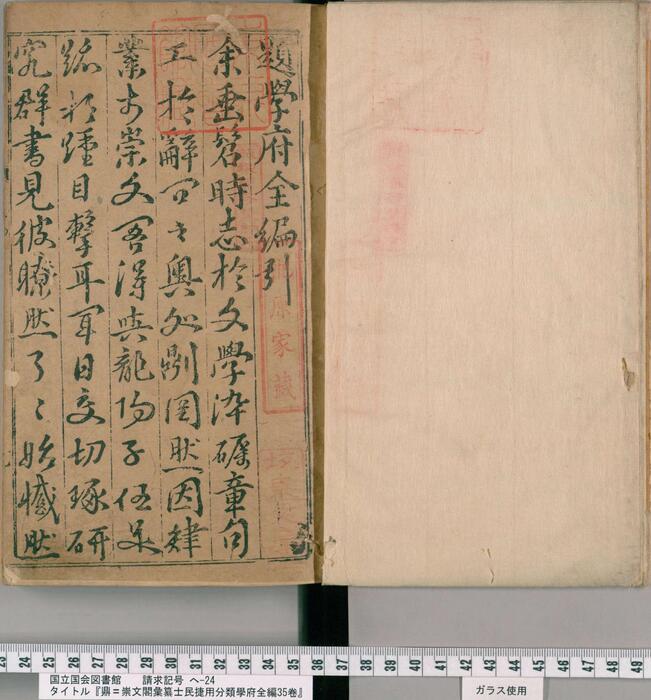 題學府全編引
余垂髫時志於文學淬礪章句
工於辭間之奧處則罔然因肄
業于崇文閣得與龍陽子伍足
跡所踵目擊耳聞日交切琢研
究群書見彼瞭然了〻始慽然
原家藏
23 24 25 26 27 28 29 30 31 32 33 34 35 36 37 38 39 40 41 42 43 44 45 46 47 48 49
国立国会図書館 請求記号 へ-24
タイトル『鼎=崇文閣彙纂士民捷用分類學府全編35巻』
ガラス使用